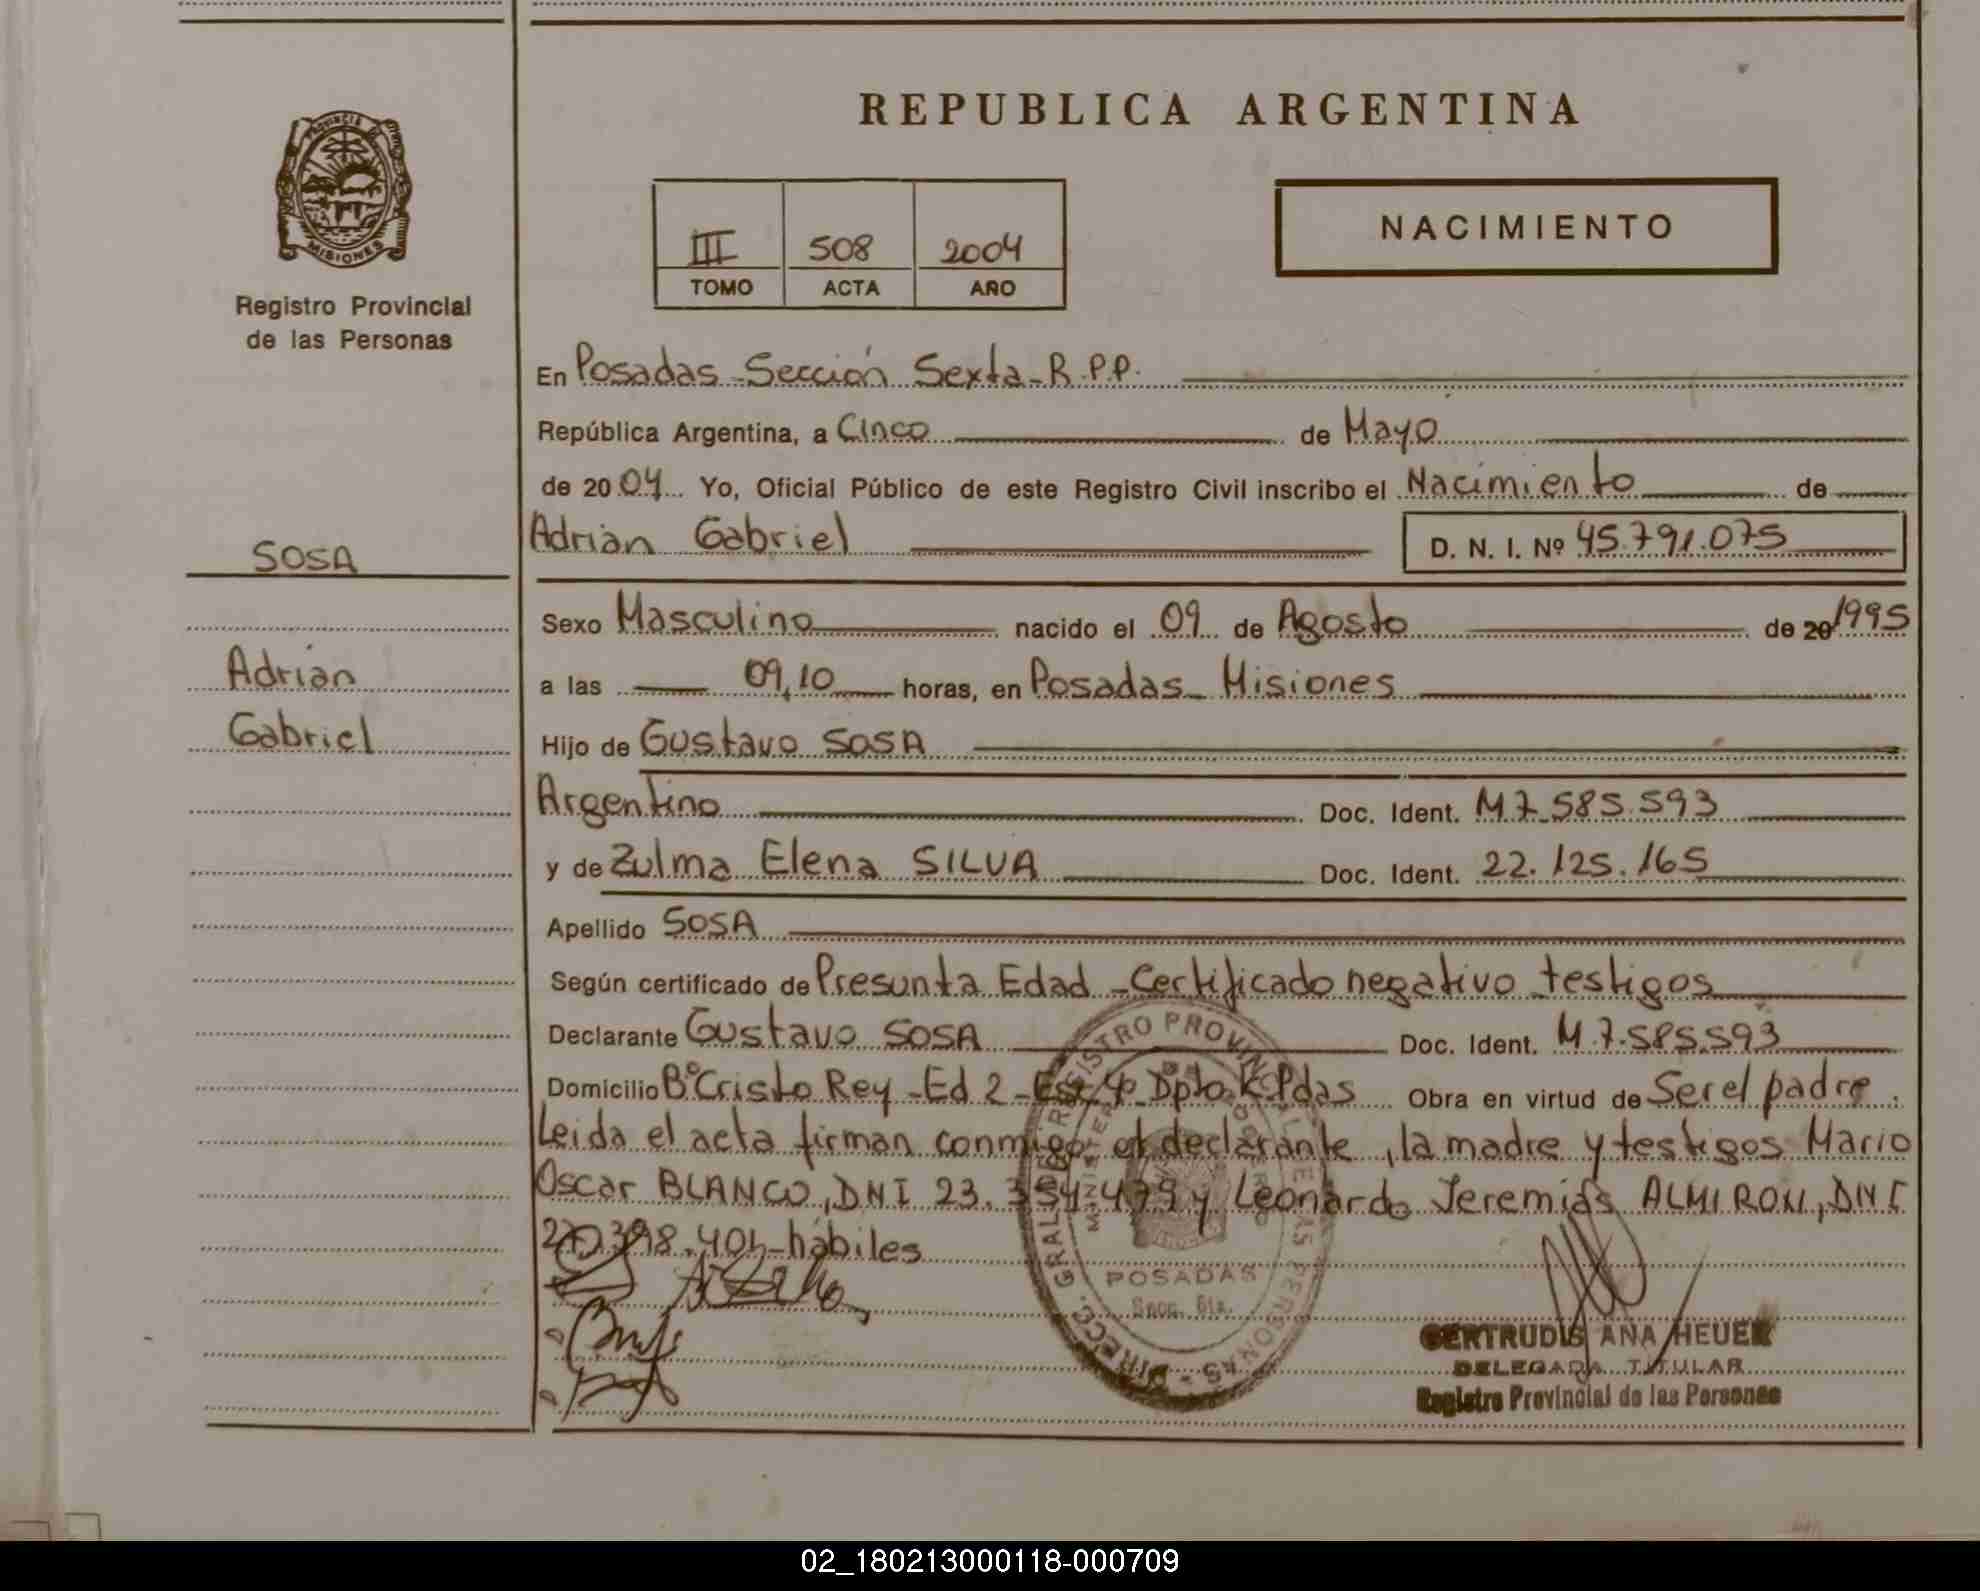 REPUBLICA ARGENTINA
PROVINCIA DE MISIONES
Registro Provincial
de las Personas
III 508 2004
TOMO ACTA AÑO
NACIMIENTO
En Posadas - Sección Sexta - R.P.P.
República Argentina, a Cinco de Mayo
de 2004 Yo, Oficial Público de este Registro Civil inscribo el Nacimiento de
Adrián Gabriel D. N. I. Nº 45.791.075
SOSA
Adrián
Gabriel
Sexo Masculino nacido el 09 de Agosto de 20 1995
a las 09,10 horas, en Posadas - Misiones
Hijo de Gustavo SOSA
Argentino Doc. Ident. M 7.585.593
y de Zulma Elena SILVA Doc. Ident. 22.125.165
Apellido SOSA
Según certificado de Presunta Edad - Certificado negativo testigos
Declarante Gustavo SOSA Doc. Ident. M.7.585.593
Domicilio Bº Cristo Rey - Ed 2 - Esc 4º Dpto K Pdas Obra en virtud de Ser el padre.
Leida el acta firman conmigo el declarante, la madre y testigos Mario
Oscar BLANCO, DNI 23.354.479 y Leonardo Jeremías ALMIRON, DNI
398.404 - hábiles
DIRECC. GRAL. DEL REGISTRO PROVINCIAL DE LAS PERSONAS
MINISTERIO DE GOBIERNO
POSADAS
Secc. 6ta.
GERTRUDIS ANA HEUER
DELEGADA TITULAR
Registro Provincial de las Personas
02_180213000118-000709